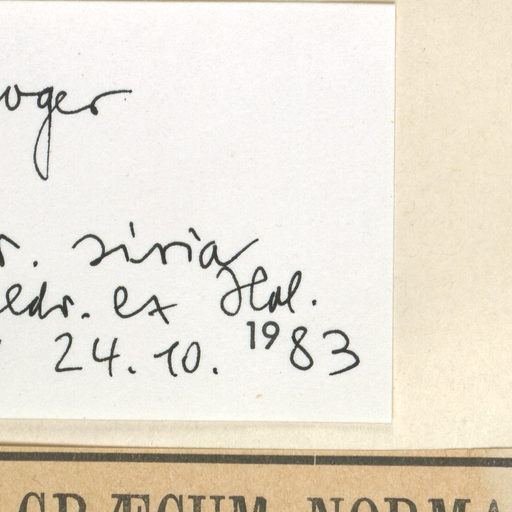 oger
r. siria
edr. ex Hal.
24. 10. 1983
GRÆCUM NORMA